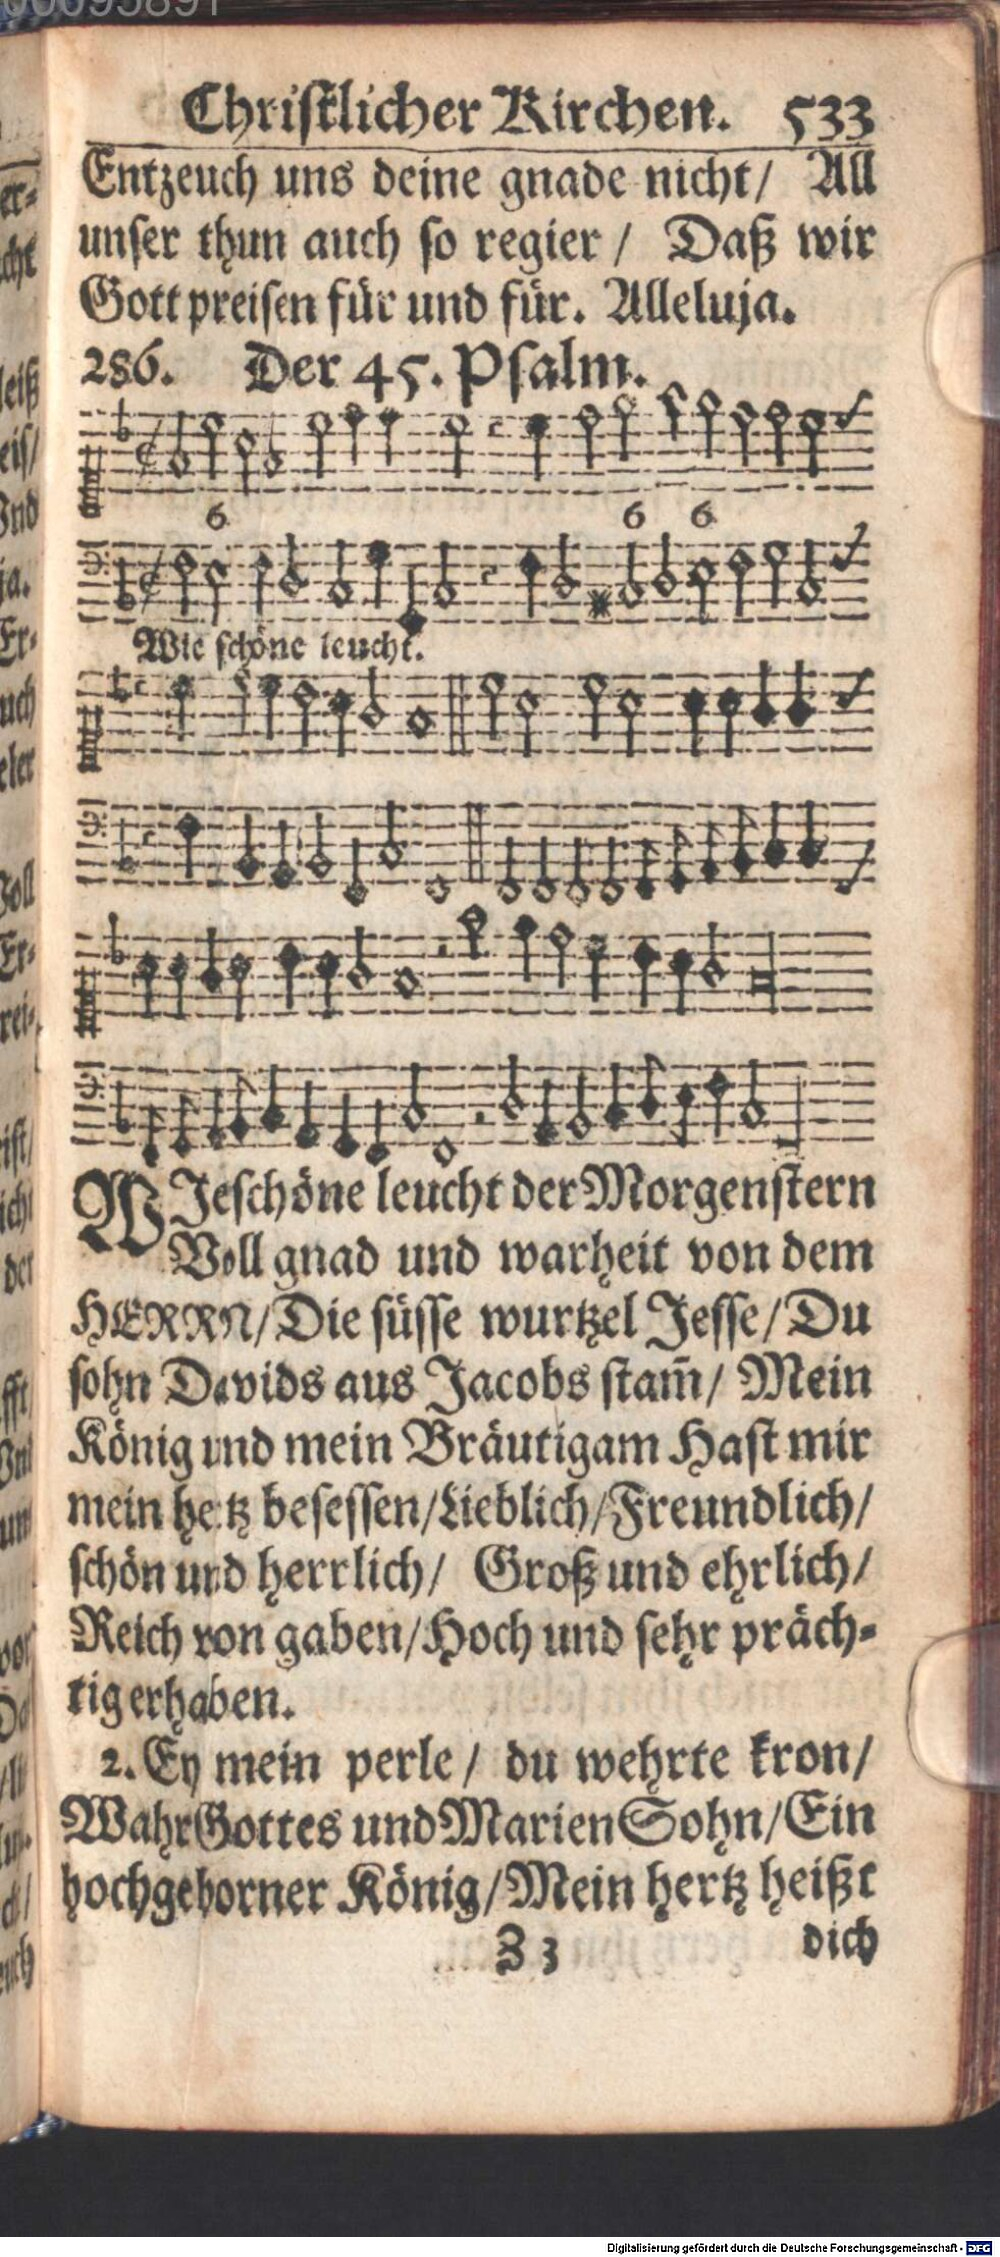 00095891
Christlicher Kirchen. 533
Entzeuch uns deine gnade nicht/ All
unser thun auch so regier/ Daß wir
Gott preisen für und für. Alleluja.
286. Der 45. Psalm.
6 6 6
Wie schöne leucht.
WJe schöne leucht der Morgenstern
Voll gnad und warheit von dem
HERRN/Die süsse wurtzel Jesse/Du
sohn Davids aus Jacobs stam̃/ Mein
König und mein Bräutigam Hast mir
mein hertz besessen/Lieblich/Freundlich/
schön und herrlich/ Groß und ehrlich/
Reich von gaben/Hoch und sehr präch-
tig erhaben.
2. Ey mein perle/ du wehrte kron/
Wahr Gottes und Marien Sohn/Ein
hochgeborner König/Mein hertz heißt
Z 3 dich
Digitalisierung gefördert durch die Deutsche Forschungsgemeinschaft - DFG